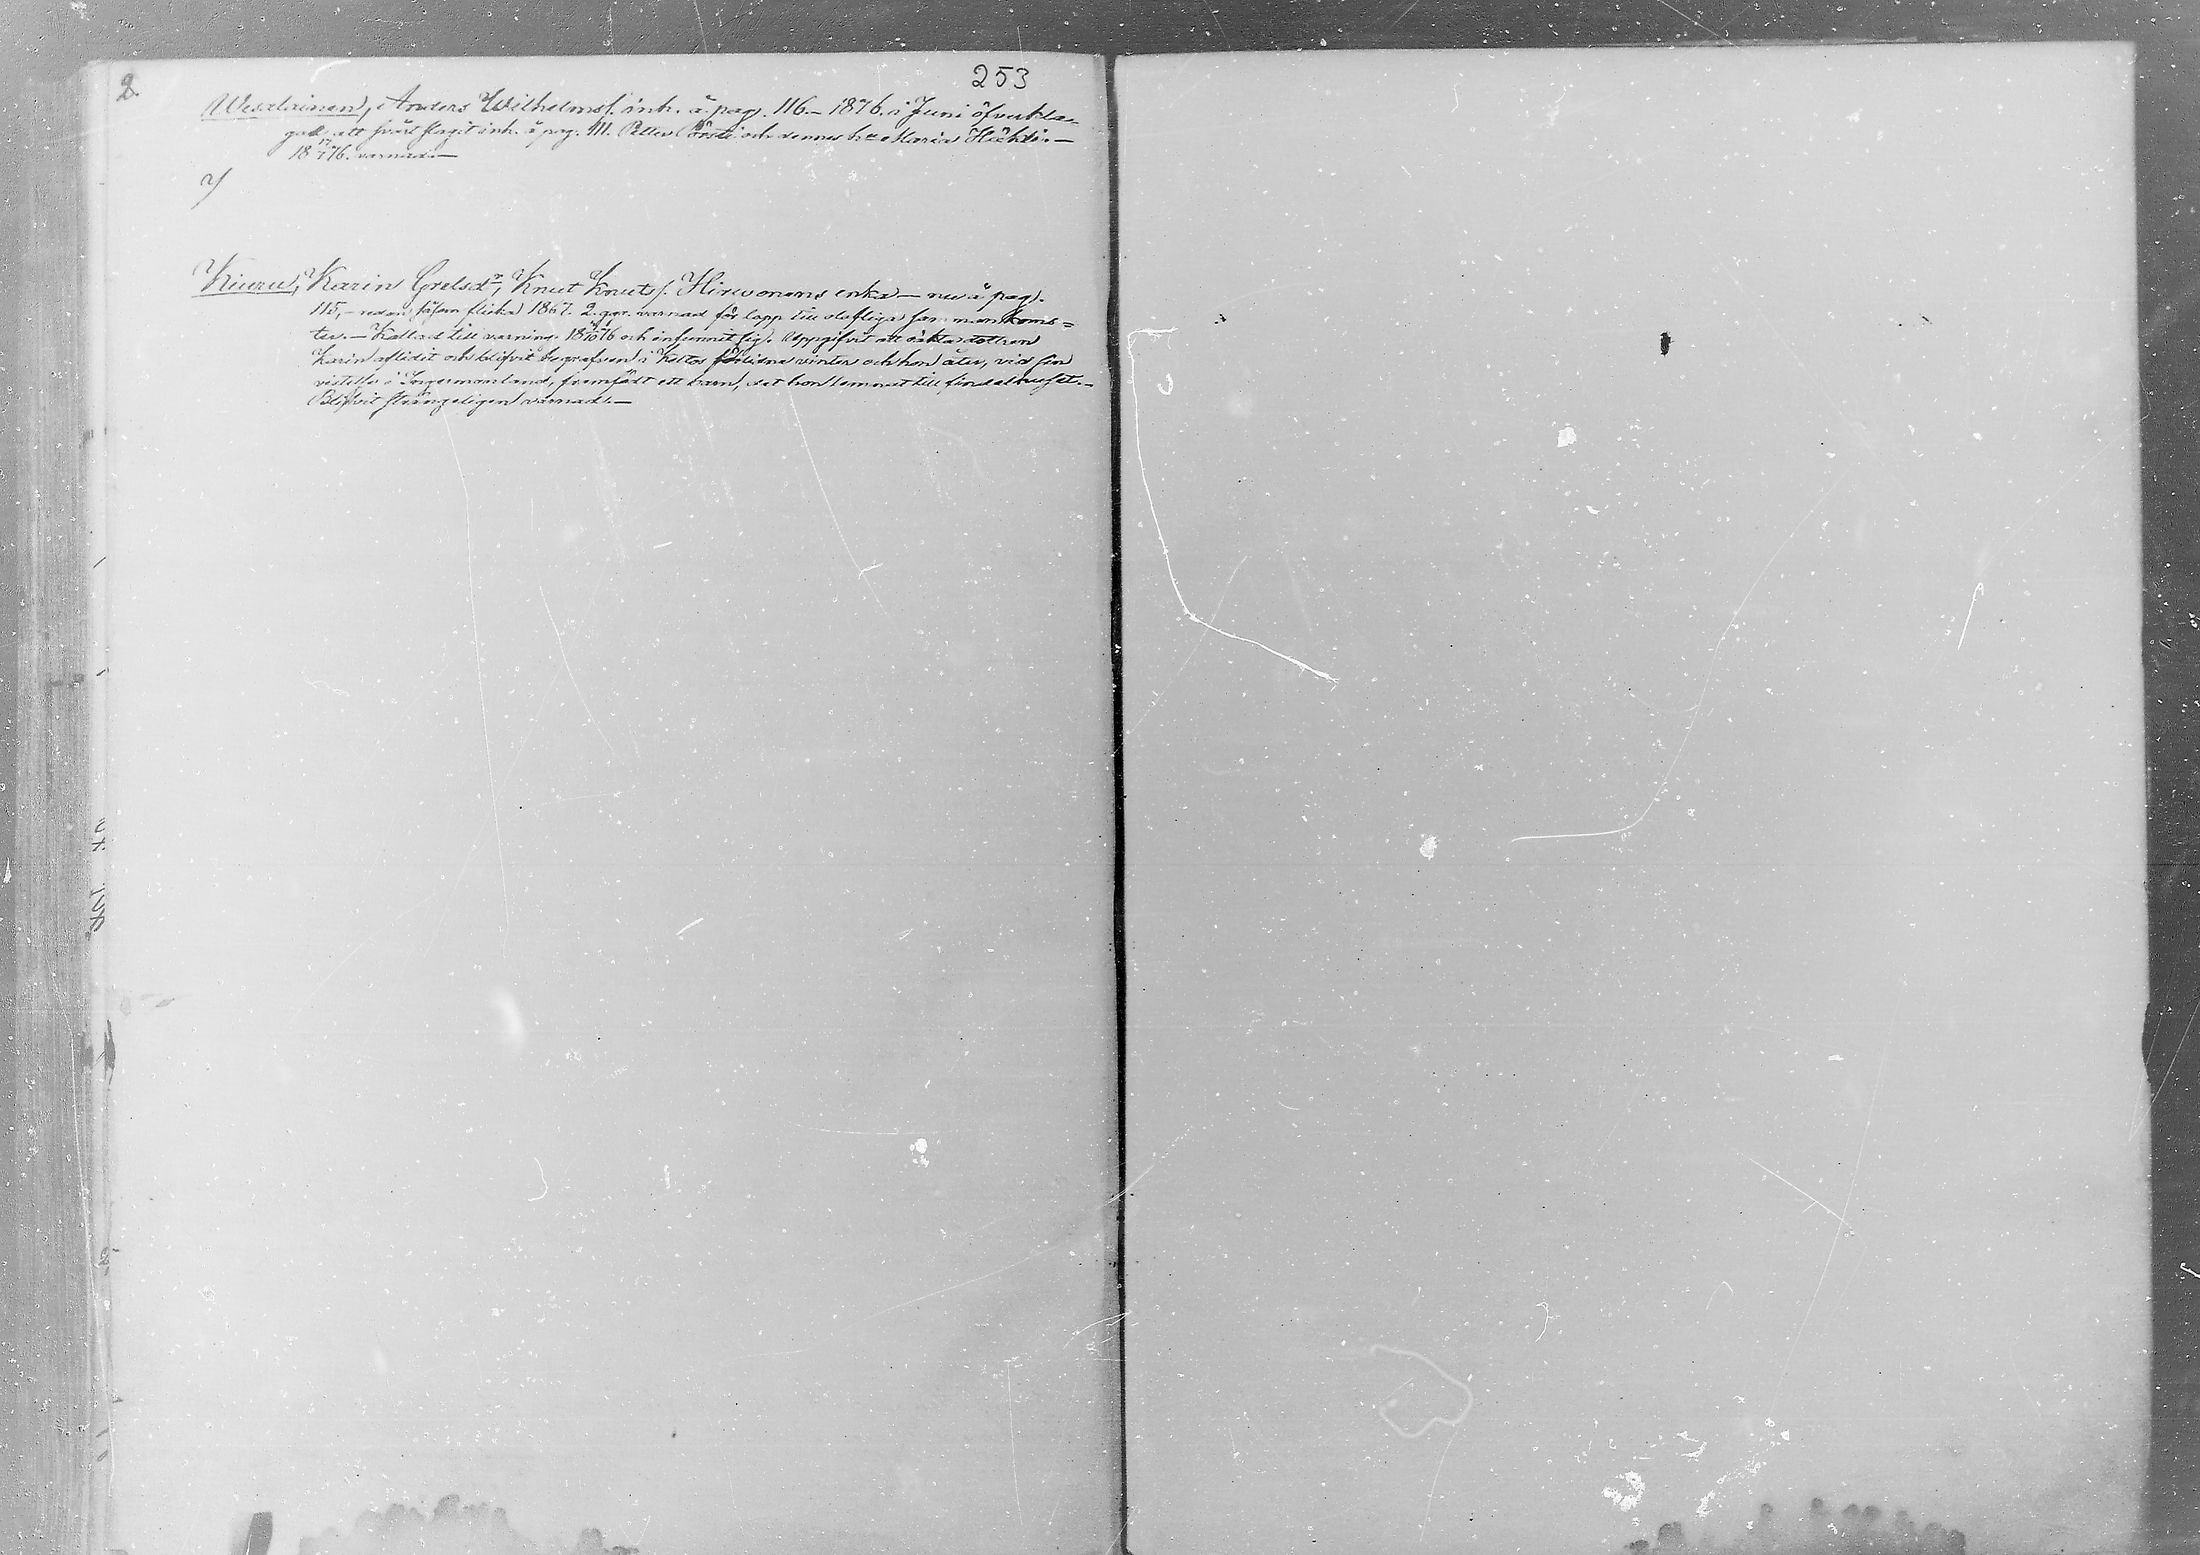 2.
253
Wesalainen, Anders Wilhelmsf. inh. å pag. 116. – 1876. i Juni öfverkla-
gad, att svårt slagit inh. å pag. 111. Petter och dennes h:u Maria Hähki. –
18 17/7 76. varnad. –
Y
Kiuru, Karin Grelsd:r, Knut Knutsf. Hirvonens enka – nu å pag.
115, – redan såsom flicka 1867. 2. ggr. varnad för lopp till olofliga sammankoms=
ter. – Kallad till varning. 18 /10 76 och infunnit sig. Uppgifvit att oäkta dottren
Karin aflidit och blifvit begrafven i Keltos förlidne vinter och hon åter, vid sin
vistelse i Ingermanland, framfödt ett barn, det hon lemnat till findelhuset. –
Blifvit strängeligen varnad. –